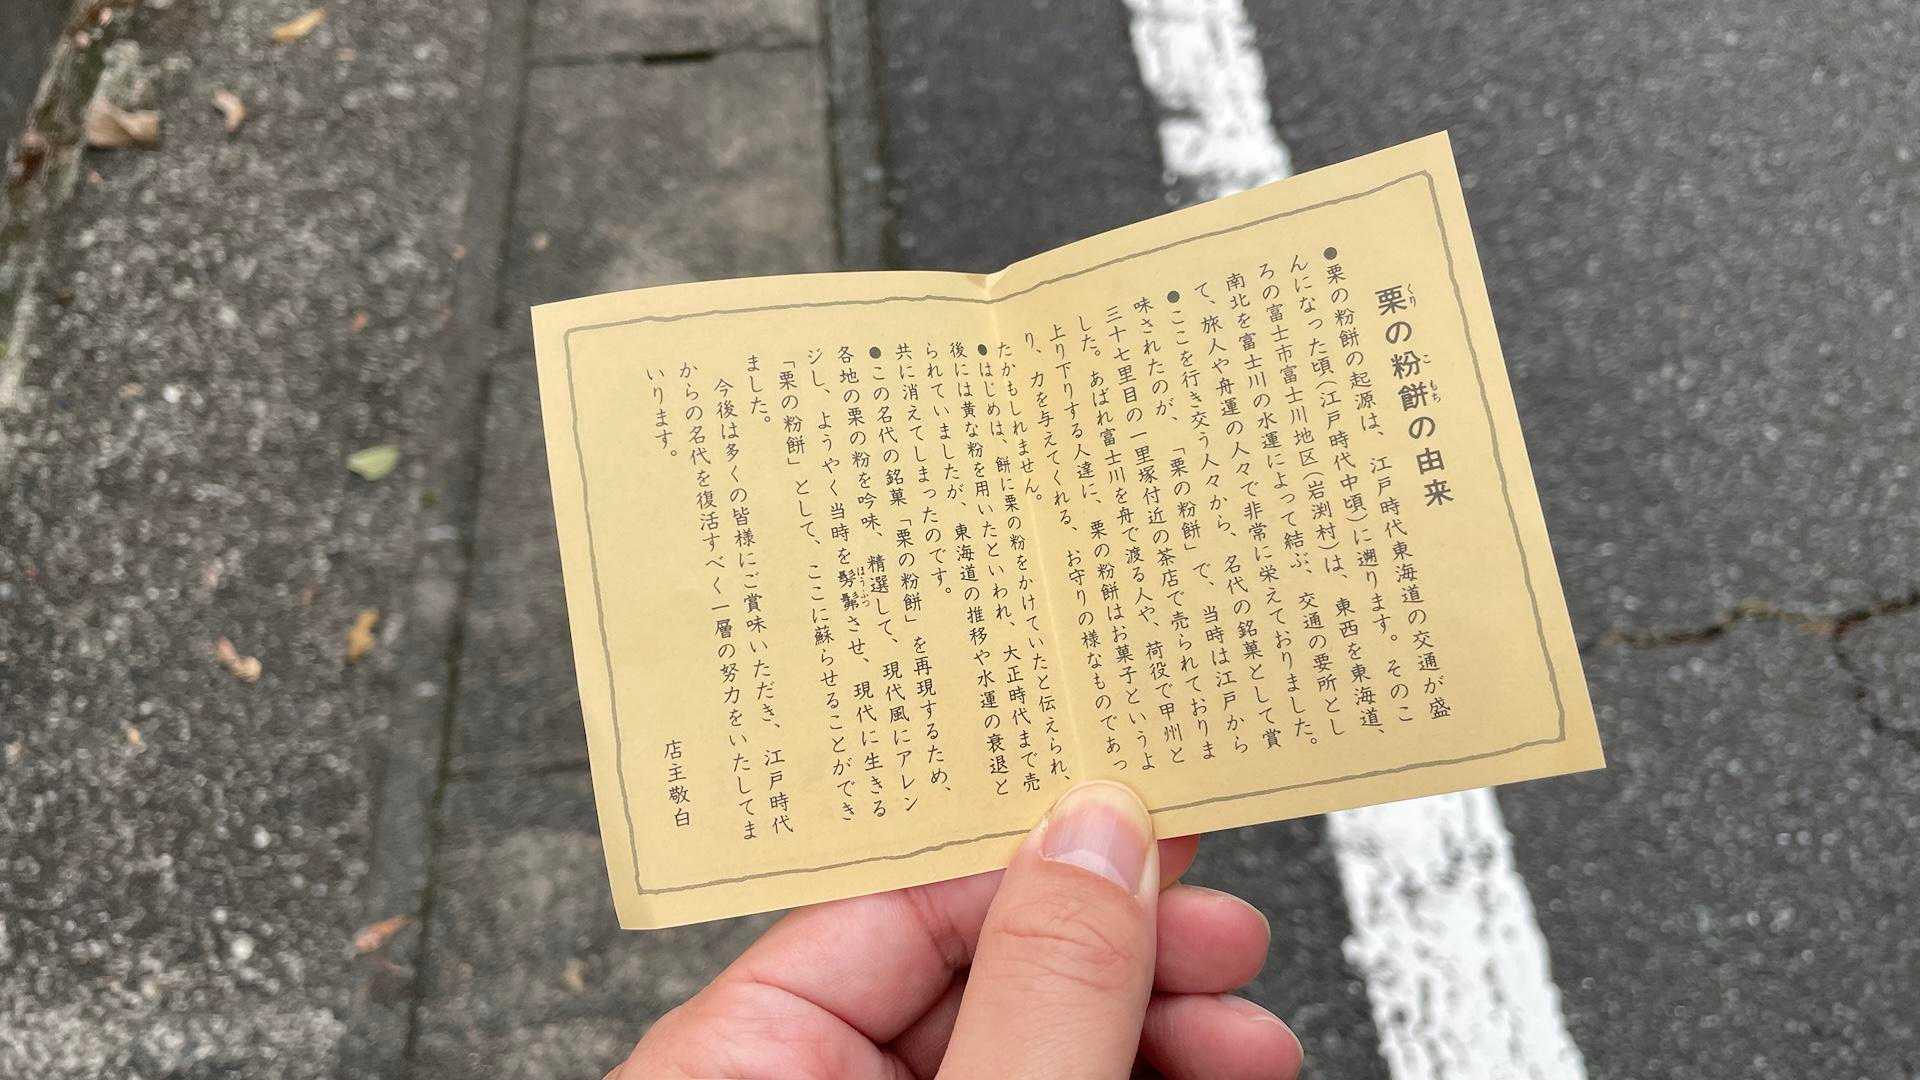 栗の粉餅の由来
くり
こ
もち
●栗の粉餅の起源は、江戸時代東海道の交通が盛
んになった頃(江戸時代中頃)に遡ります。そのこ
ろの富士市富士川地区(岩渕村)は、東西を東海道、
南北を富士川の水運によって結ぶ、交通の要所とし
て、旅人や舟運の人々で非常に栄えておりました。
●ここを行き交う人々から、名代の銘菓として賞
味されたのが、「栗の粉餅」で、当時は江戸から
三十七里目の一里塚付近の茶店で売られておりま
した。あばれ富士川を舟で渡る人や、荷役で甲州と
上り下りする人達に、栗の粉餅はお菓子というよ
り、力を与えてくれる、お守りの様なものであっ
たかもしれません。
●はじめは、餅に栗の粉をかけていたと伝えられ、
後には黄な粉を用いたといわれ、大正時代まで売
られていましたが、東海道の推移や水運の衰退と
共に消えてしまったのです。
●この名代の銘菓「栗の粉餅」を再現するため、
各地の栗の粉を吟味、精選して、現代風にアレン
ジし、ようやく当時を髣髴させ、現代に生きる
ほうふつ
「栗の粉餅」として、ここに蘇らせることができ
ました。
今後は多くの皆様にご賞味いただき、江戸時代
からの名代を復活すべく一層の努力をいたしてま
いります。
店主敬白